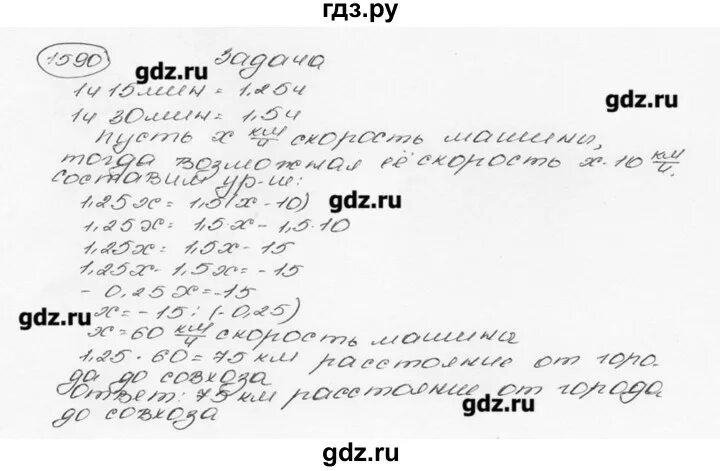 гдз.ру
1590 Задача
gdz.ru
1ч 15мин = 1,25ч
gdz.ru
1ч 30мин = 1,5ч
пусть x км/ч скорость машины,
тогда возможная её скорость x-10 км/ч.
составим ур-ие:
1,25x = 1,5(x-10)
gdz.ru
1,25x = 1,5·x - 1,5·10
1,25x = 1,5x - 15
1,25x - 1,5x = -15
- 0,25x = -15
gdz.ru
x = -15 : (-0,25)
x = 60 км/ч скорость машины
1,25 · 60 = 75 км расстояние от горо-
да до совхоза
Ответ: 75 км расстояние от города
gdz.ru
до совхоза
gdz.ru